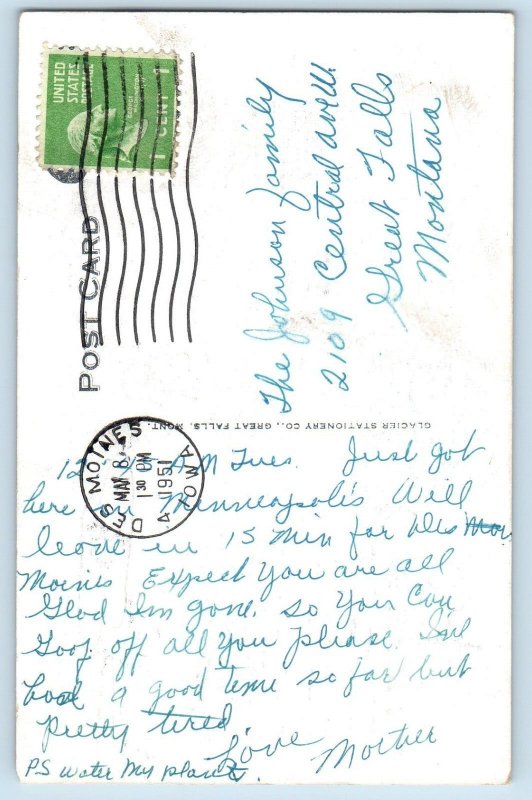 POST CARD
UNITED
STATES
POSTAGE
1 CENT 1
DES MOINES
MAY 8
1 30 PM
1951
IOWA
The Johnson family
2109 Central ave W.
Great Falls
Montana
GLACIER STATIONERY CO., GREAT FALLS, MONT.
A M Tues. Just got
here in Minneapolis Will
leave in 15 min for Des
Moines Expect You are all
Glad Im gone. so You Can
Goof off all You please. I've
had a good time so far but
pretty tired.
Love
Mother
PS Water My plants.